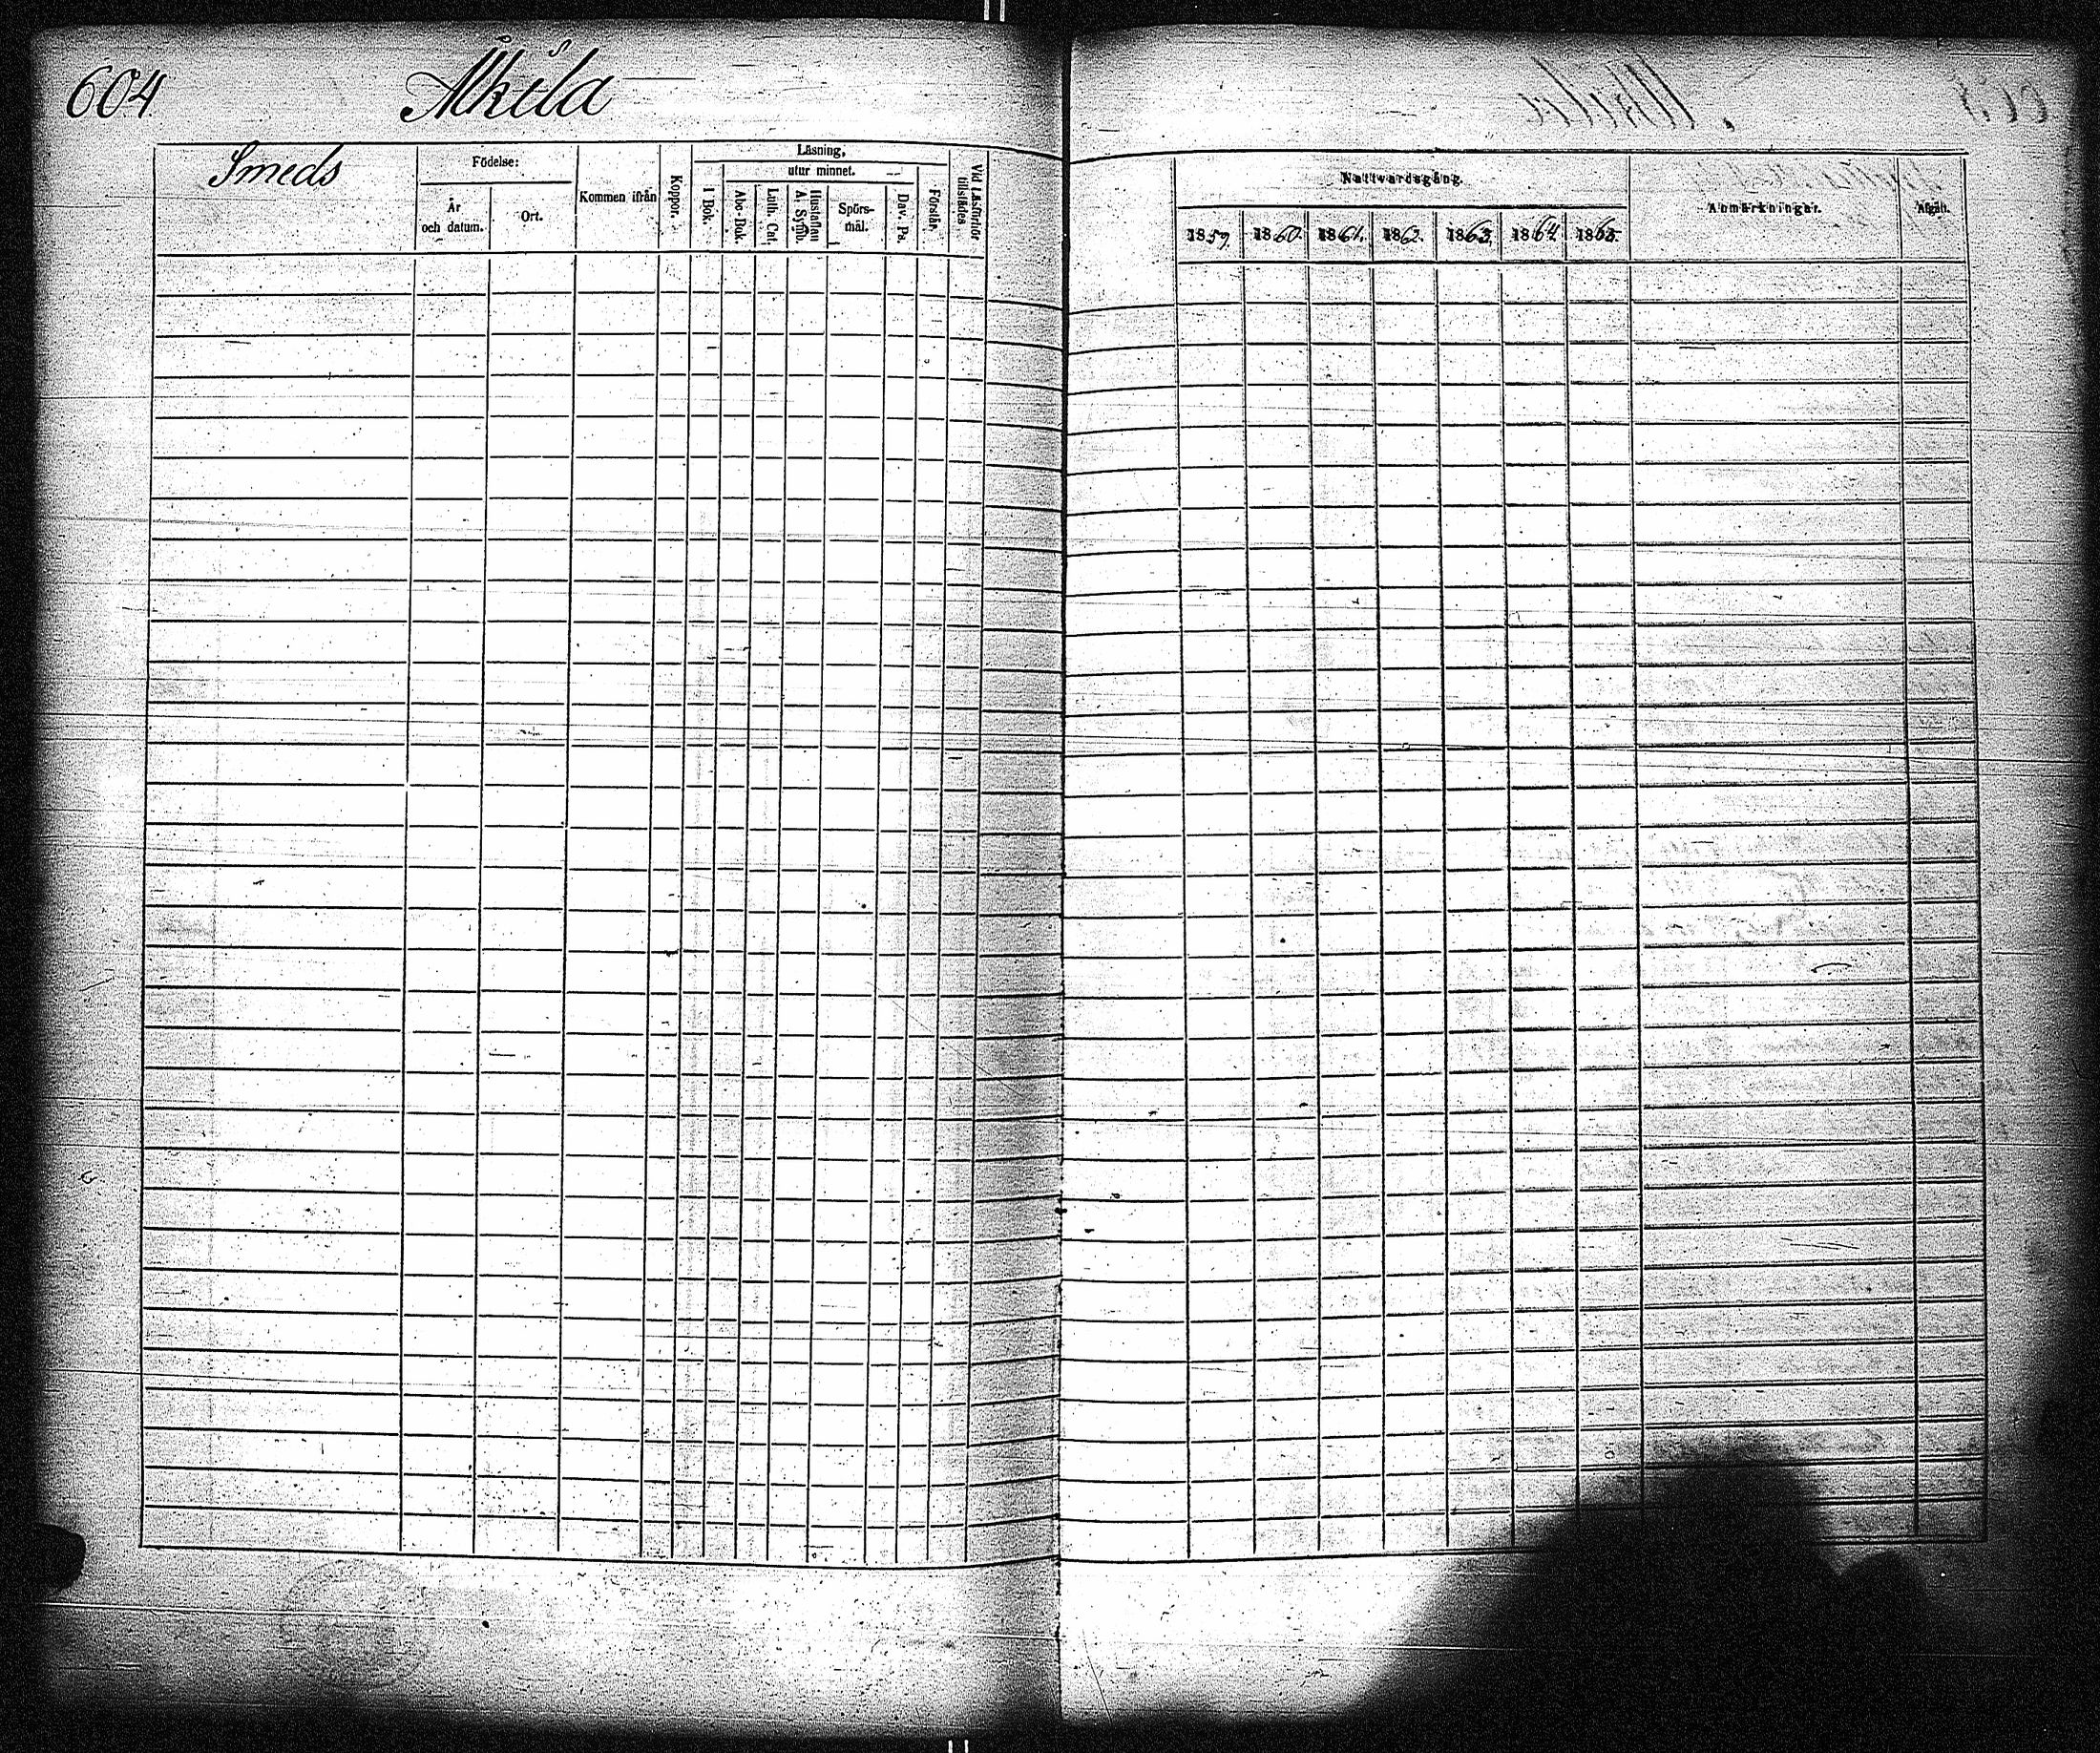 604.
Åkila
Smeds
Födelse:
År
och datum.
Ort.
Kommen ifrån
Koppor.
Läsning,
utur minnet.
I Bok.
Abc-Bok.
Luth. Cat.
Hustaflan
A. Symb.
Spörs-
mål.
Dav. Ps.
Förstår.
Vid Läsförhör
tillstädes.
Nattvardsgång.
1859.
1860.
1861.
1862.
1863.
1864.
1865.
Anmärkningar.
Afgått.